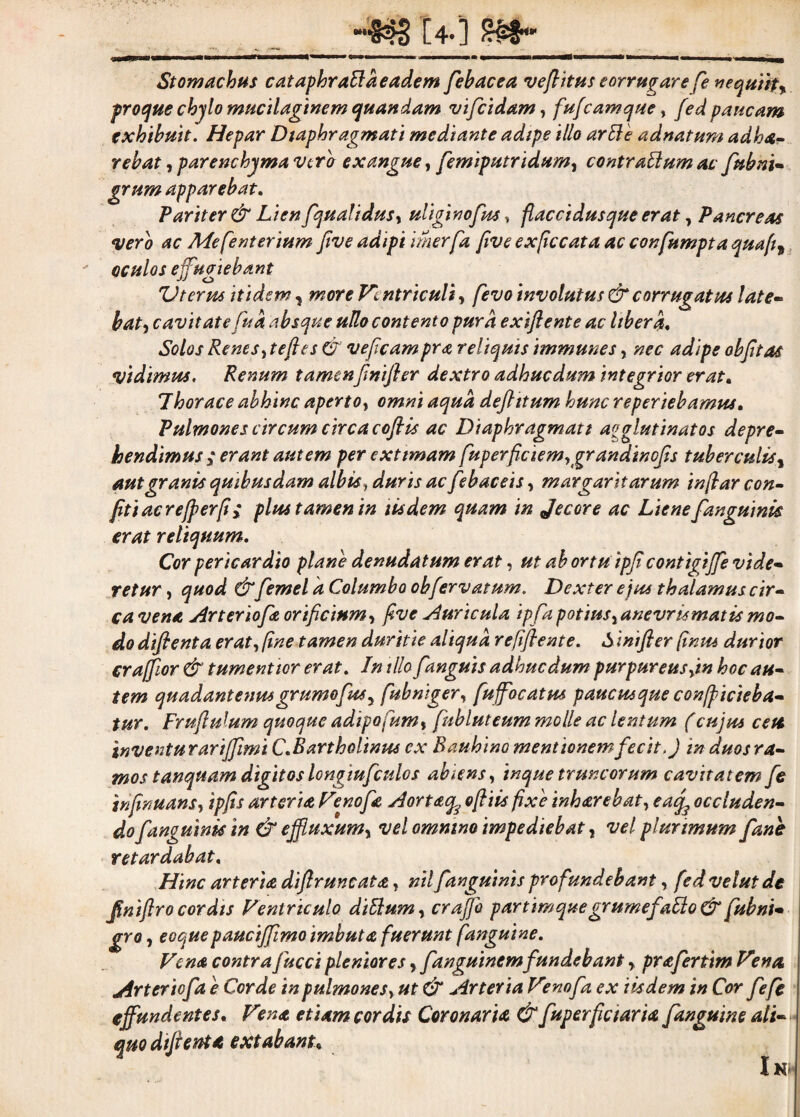 [4.]
Stomachus cataphractâ eadem ſebacea veſtitus corrugare ſe nequiit,
proque chylo mucilaginem quandam viſcidam, fuſcamque, ſed paucam
exhibuit. Hepar Diaphragmati mediante adipe illo arcte adnatum adhæ-
rebat, parenchyma verò exangue, ſemiputridum, contractum ac ſubni-
grum apparebat.
Pariter & Lien ſqualidus, uliginoſus, flaccidusque erat, Pancreas
verò ac Meſenterium ſive adipi imerſa ſive exſiccata ac conſumpta quaſi,
oculos effugiebant
Uterus itidem, more Ventriculi, ſevo involutus & corrugatus late-
bat, cavitate ſuâ absque ullo contento purâ exiſtente ac liberâ.
Solos Renes, teſtes & veſicam præ reliquis immunes, nec adipe obſitas
vidimus. Renum tamen ſiniſter dextro adhucdum integrior erat.
Thorace abhinc aperto, omni aquâ deſtitum hunc reperiebamus.
Pulmones circum circa coſtis ac Diaphragmati agglutinatos depre-
hendimus; erant autem per extimam ſuperficiem, grandinoſis tuberculis,
aut granis quibusdam albis, duris ac ſebaceis, margaritarum inſtar con-
ſiti ac reſperſi; plus tamen in iisdem quam in Jecore ac Liene ſanguinis
erat reliquum.
Cor pericardio planè denudatum erat, ut ab ortu ipſi contigiſſe vide-
retur, quod & ſemel à Columbo obſervatum. Dexter ejus thalamus cir-
ca venæ Arterioſæ orificium, ſive Auricula ipſa potius, anevrismatis mo-
do diſtenta erat, ſine tamen duritie aliquâ reſiſtente. Siniſter ſinus durior
craſſior & tumentior erat. In illo ſanguis adhucdum purpureus, in hoc au-
tem quadantenus grumoſus, ſubniger, ſuffocatus paucusque conſpicieba-
tur. Fruſtulum quoque adipoſum, ſubluteum molle ac lentum (cujus ceu
inventu rariſſimi C. Bartholinus ex Bauhino mentionem fecit.) in duos ra-
mos tanquam digitos longiuſculos abiens, inque truncorum cavitatem ſe
inſinuans, ipſis arteriæ Venoſæ Aortæq; oſtiis fixè inhærebat, eaq; occluden-
do ſanguinis in & effluxum, vel omnino impediebat, vel plurimum ſanè
retardabat.
Hinc arteriæ diſtruncatæ, nil ſanguinis profundebant, ſed velut de
ſiniſtro cordis Ventriculo dictum, craſſo partimque grumefacto & ſubni-
gro, eoque pauciſſimo imbutæ fuerunt ſanguine.
Venæ contra ſucci pleniores, ſanguinem fundebant, præſertim Vena
Arterioſa è Corde in pulmones, ut & Arteria Venoſa ex iisdem in Cor ſeſe
effundentes. Venæ etiam cordis Coronariæ & ſuperficiariæ ſanguine ali-
quo diſtentæ extabant.
In